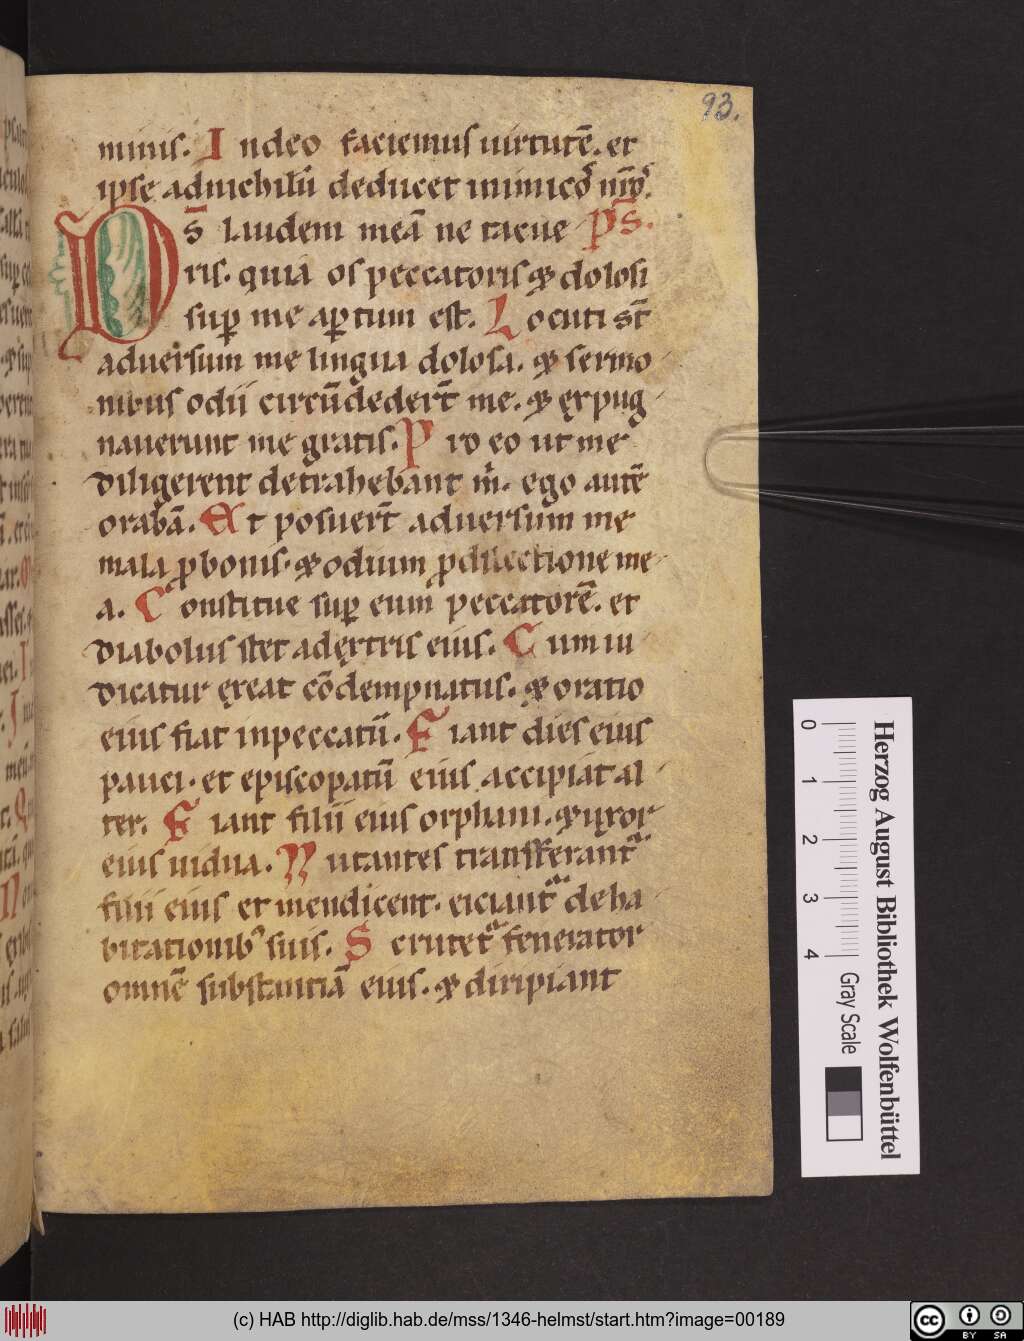 93.
minis. In deo faciemus uirtutē. et
ipse adnichilū deducet inimicos nr̄os.
Ds̄ laudem meā ne tacue Ps̄.
ris. quia os peccatoris & dolosi
suꝑ me aꝑtum est. Locuti st̄
aduersum me lingua dolosa. & sermo
nibus odii circūdeder̄t me. & expug
nauerunt me gratis. Pro eo ut me
diligerent detrahebant m̄. ego autē
orabā. Et posuer̄t aduersum me
mala ꝓ bonis. & odium ꝓ dilectione me
a. Constitue suꝑ eum peccatorē. et
diabolus stet adęxtris eius. Cum iu
dicatur ęxeat cōdempnatus. & oratio
eius fiat inpeccatū. Fiant dies eius
pauci. et episcopatū eius accipiat al
ter. Fiant filii eius orphani. & uxor
eius uidua. Nutantes transferant᷑
filii eius et mendicent. eiciant᷑ de ha
bitationibꝰ suis. Scrutet᷑ fenerator
omnē substantiā eius. & diripiant
Herzog August Bibliothek Wolfenbüttel
0 1 2 3 4 Gray Scale
(c) HAB http://diglib.hab.de/mss/1346-helmst/start.htm?image=00189
cc BY SA